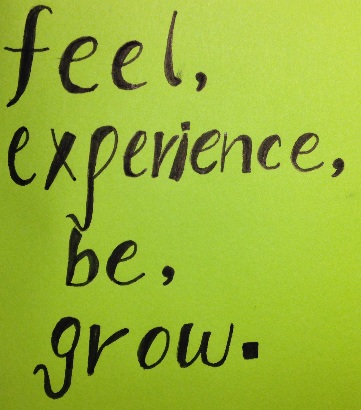 feel,
experience,
be,
grow.